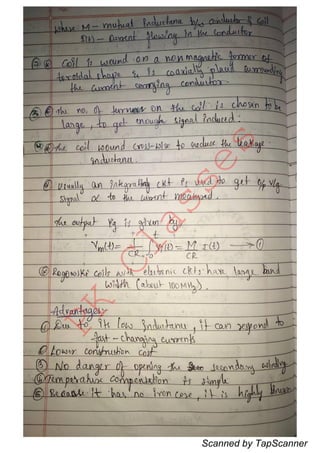 where M - mutual inductance b/w conductor & coil
I(t) - current flowing in the conductor
Coil is wound on a nonmagnetic former of
toroidal shape & is coaxially placed surrounding
the current carrying conductor.
The no. of turns on the coil is chosen to be
large, to get enough signal induced.
The coil wound cross-wise to reduce the leakage
inductance.
Usually an integrating ckt is used to get o/p vlg
signal ∝ to the current measured.
The output vlg is given by
Vm(t) = 1/CR ∫ Vi(t) = M/CR I(t) → ①
Rogowski coils with electronic ckts have large band
width (about 100MHz).
Advantages
① Due to its low inductance, it can respond to
fast-changing currents
② Lower construction cost
③ No danger of opening the secondary winding
④ Temperature compensation is simple
⑤ Because it has no iron core, it is highly linear
KK Classes
Scanned by TapScanner